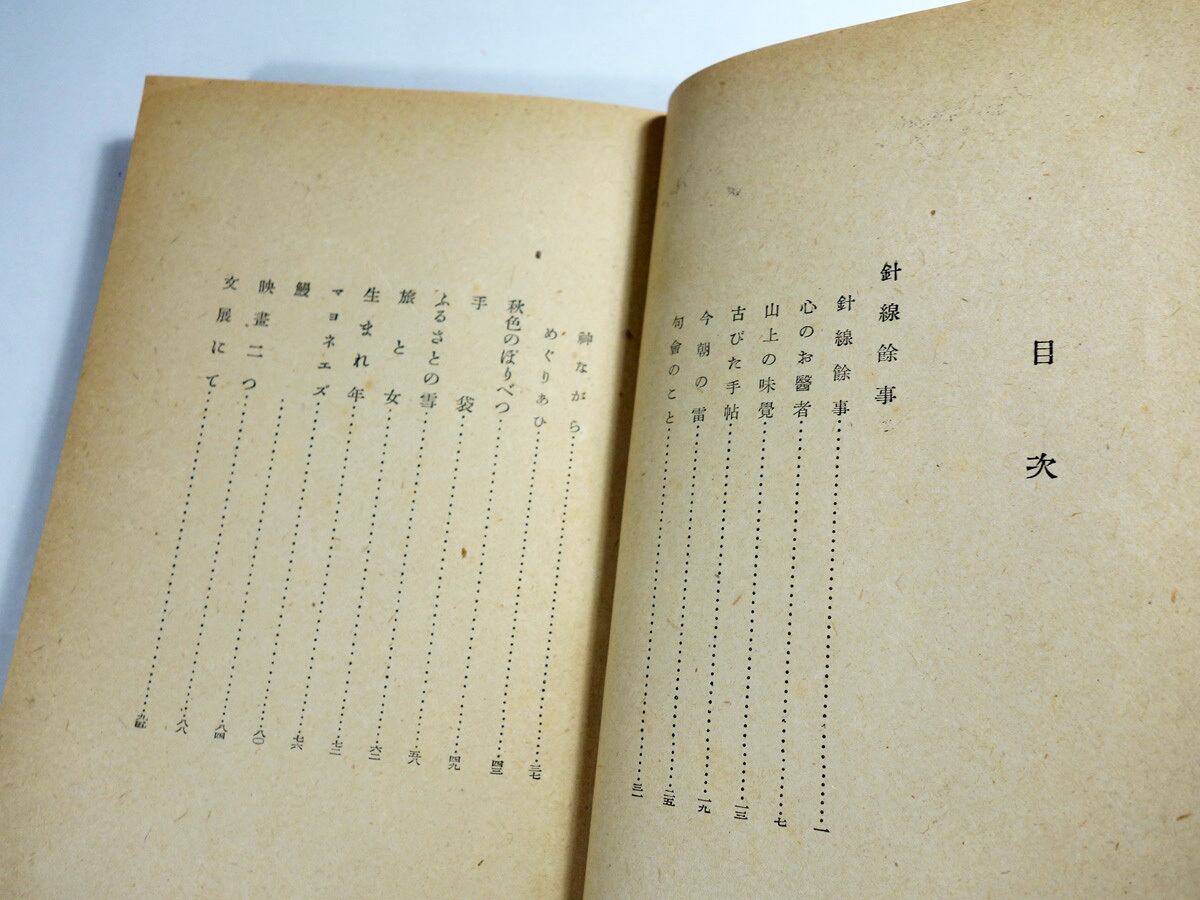 目次
針線餘事
針線餘事…………一
心のお醫者…………七
山上の味覺…………一三
古びた手帖…………一九
今朝の雷…………二五
句會のこと…………三一
神ながら…………三七
めぐりあひ…………四三
秋色のぼりべつ…………四九
手袋…………五八
ふるさとの雪…………六二
旅と女…………七二
生まれ年…………七六
マヨネエズ…………八〇
鰻…………八四
映畫二つ…………八八
文展にて…………